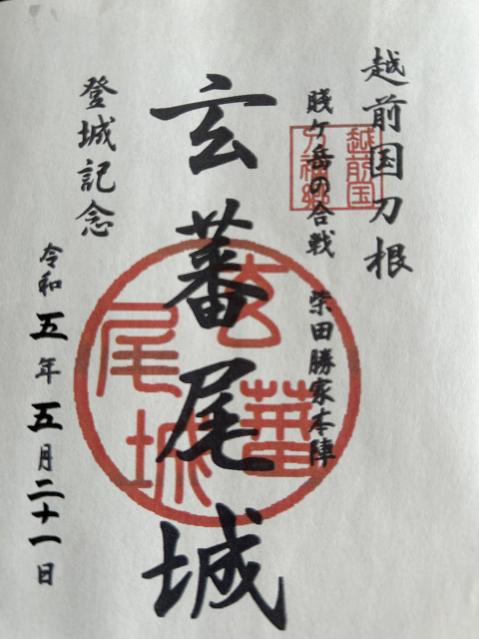 越前国刀根
賤ケ岳の合戦 柴田勝家本陣
玄蕃尾城
登城記念
令和五年五月二十一日
玄蕃尾城
越前国
刀禰郷